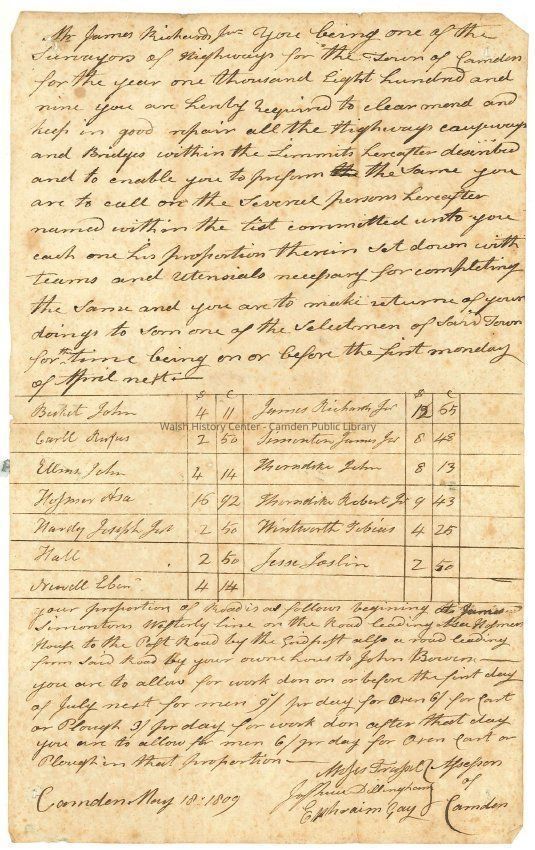 Mr James Richards Jur You being one of the
Survayors of Highways for the Town of Camden
for the year one thousand Eight hundred and
nine you are herby Required to clear mend and
keep in good repair all the Highways causways
and Bridges within the Limmits hereafter discribed
and to enable you to preform the Same you
are to call on the Several persons hereafter
named within the list committed unto you
each one his proportion therein Set down with
teams and utensials necessary for compleating
the Same and you are to make returne of your
doings to Som one of the Selectmen of Said Town
for the time being on or before the first monday
of April next
$ C $ C
Becket John 4 11 James Richards Jur 12 65
Walsh History Center - Camden Public Library
Carll Rufus 2 50 Simonton James Jur 8 48
Ellms John 4 14 Thorndike John 8 13
Hosmer Asa 16 92 Thorndike Robert Jr 9 43
Hardy Joseph Jur 2 50 Wentworth Tobias 4 25
Hall 2 50 Jesse Joslin 2 50
Newell Eben 4 14
your proportion of Road is as follows begining at James
Simontons Westerly line on the Road leading Asa Hosmers
House to the Post Road by the Godpost also a road leading
from Said Road by your owne hous to John Bowers
you are to allow for work don on or before the first day
of July next for men 9/ pr day for Oxen 6/ for Cart
or Plough 3/ pr day for work don after that day
you are to allow for men 6/ pr day for Oxen Cart or
Plough in that proportion
Moses Trussel Assesson
Joshua Dillingham of
Camden May 18: 1809 Ephraim Gay Camden